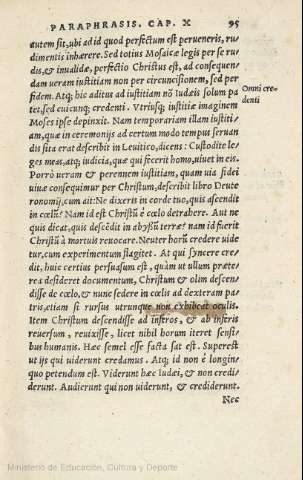 PARAPHRASIS. CAP. X 95
autem sit, ubi ad id quod perfectum est perueneris, ru-
dimentis inhærere. Sed totius Mosaicæ legis per se ru-
dis, & inualidæ, perfectio Christus est, ad consequen-
dam ueram iustitiam non per circuncisionem, sed per
fidem. Atq; hic aditus ad iustitiam nõ Iudæis solum pa-
tet, sed cuicunq; credenti. Vtriusq; iustitiæ imaginem
Omni cre-
denti
Moses ipse depinxit. Nam temporariam illam iustiti-
am, quæ in ceremonijs ad certum modo tempus seruan
dis sita erat describit in Leuitico, dicens: Custodite le-
ges meas, atq; iudicia, quæ qui fecerit homo, uiuet in eis.
Porrò ueram & perennem iustitiam, quam uia fidei
uiuæ consequimur per Christum, describit libro Deute
ronomij, cum ait: Ne dixeris in corde tuo, quis ascendit
in cœlũ? Nam id est Christũ è cœlo detrahere. Aut ne
quis dicat, quis descẽdit in abyssũ terræ? nam id fuerit
Christũ à mortuis reuocare. Neuter horũ credere uide
tur, cum experimentum flagitet. At qui syncere cre-
dit, huic certius persuasum est, quàm ut ullum præte-
rea desideret documentum, Christum & olim descen-
disse de cœlo, & nunc sedere in cœlis ad dexteram pa-
tris, etiam si rursus utrunque non exhibeat oculis.
Item Christum descendisse ad inferos, & ab inferis
reuersum, reuixisse, licet nihil horum iteret sensi-
bus humanis. Hæc semel esse facta sat est. Superest
ut ijs qui uiderunt credamus. Atq; id non è longin-
quo petendum est. Viderunt hæc Iudæi, & non credi-
derunt. Audierunt qui non uiderunt, & crediderunt.
Nec
Ministerio de Educación, Cultura y Deporte